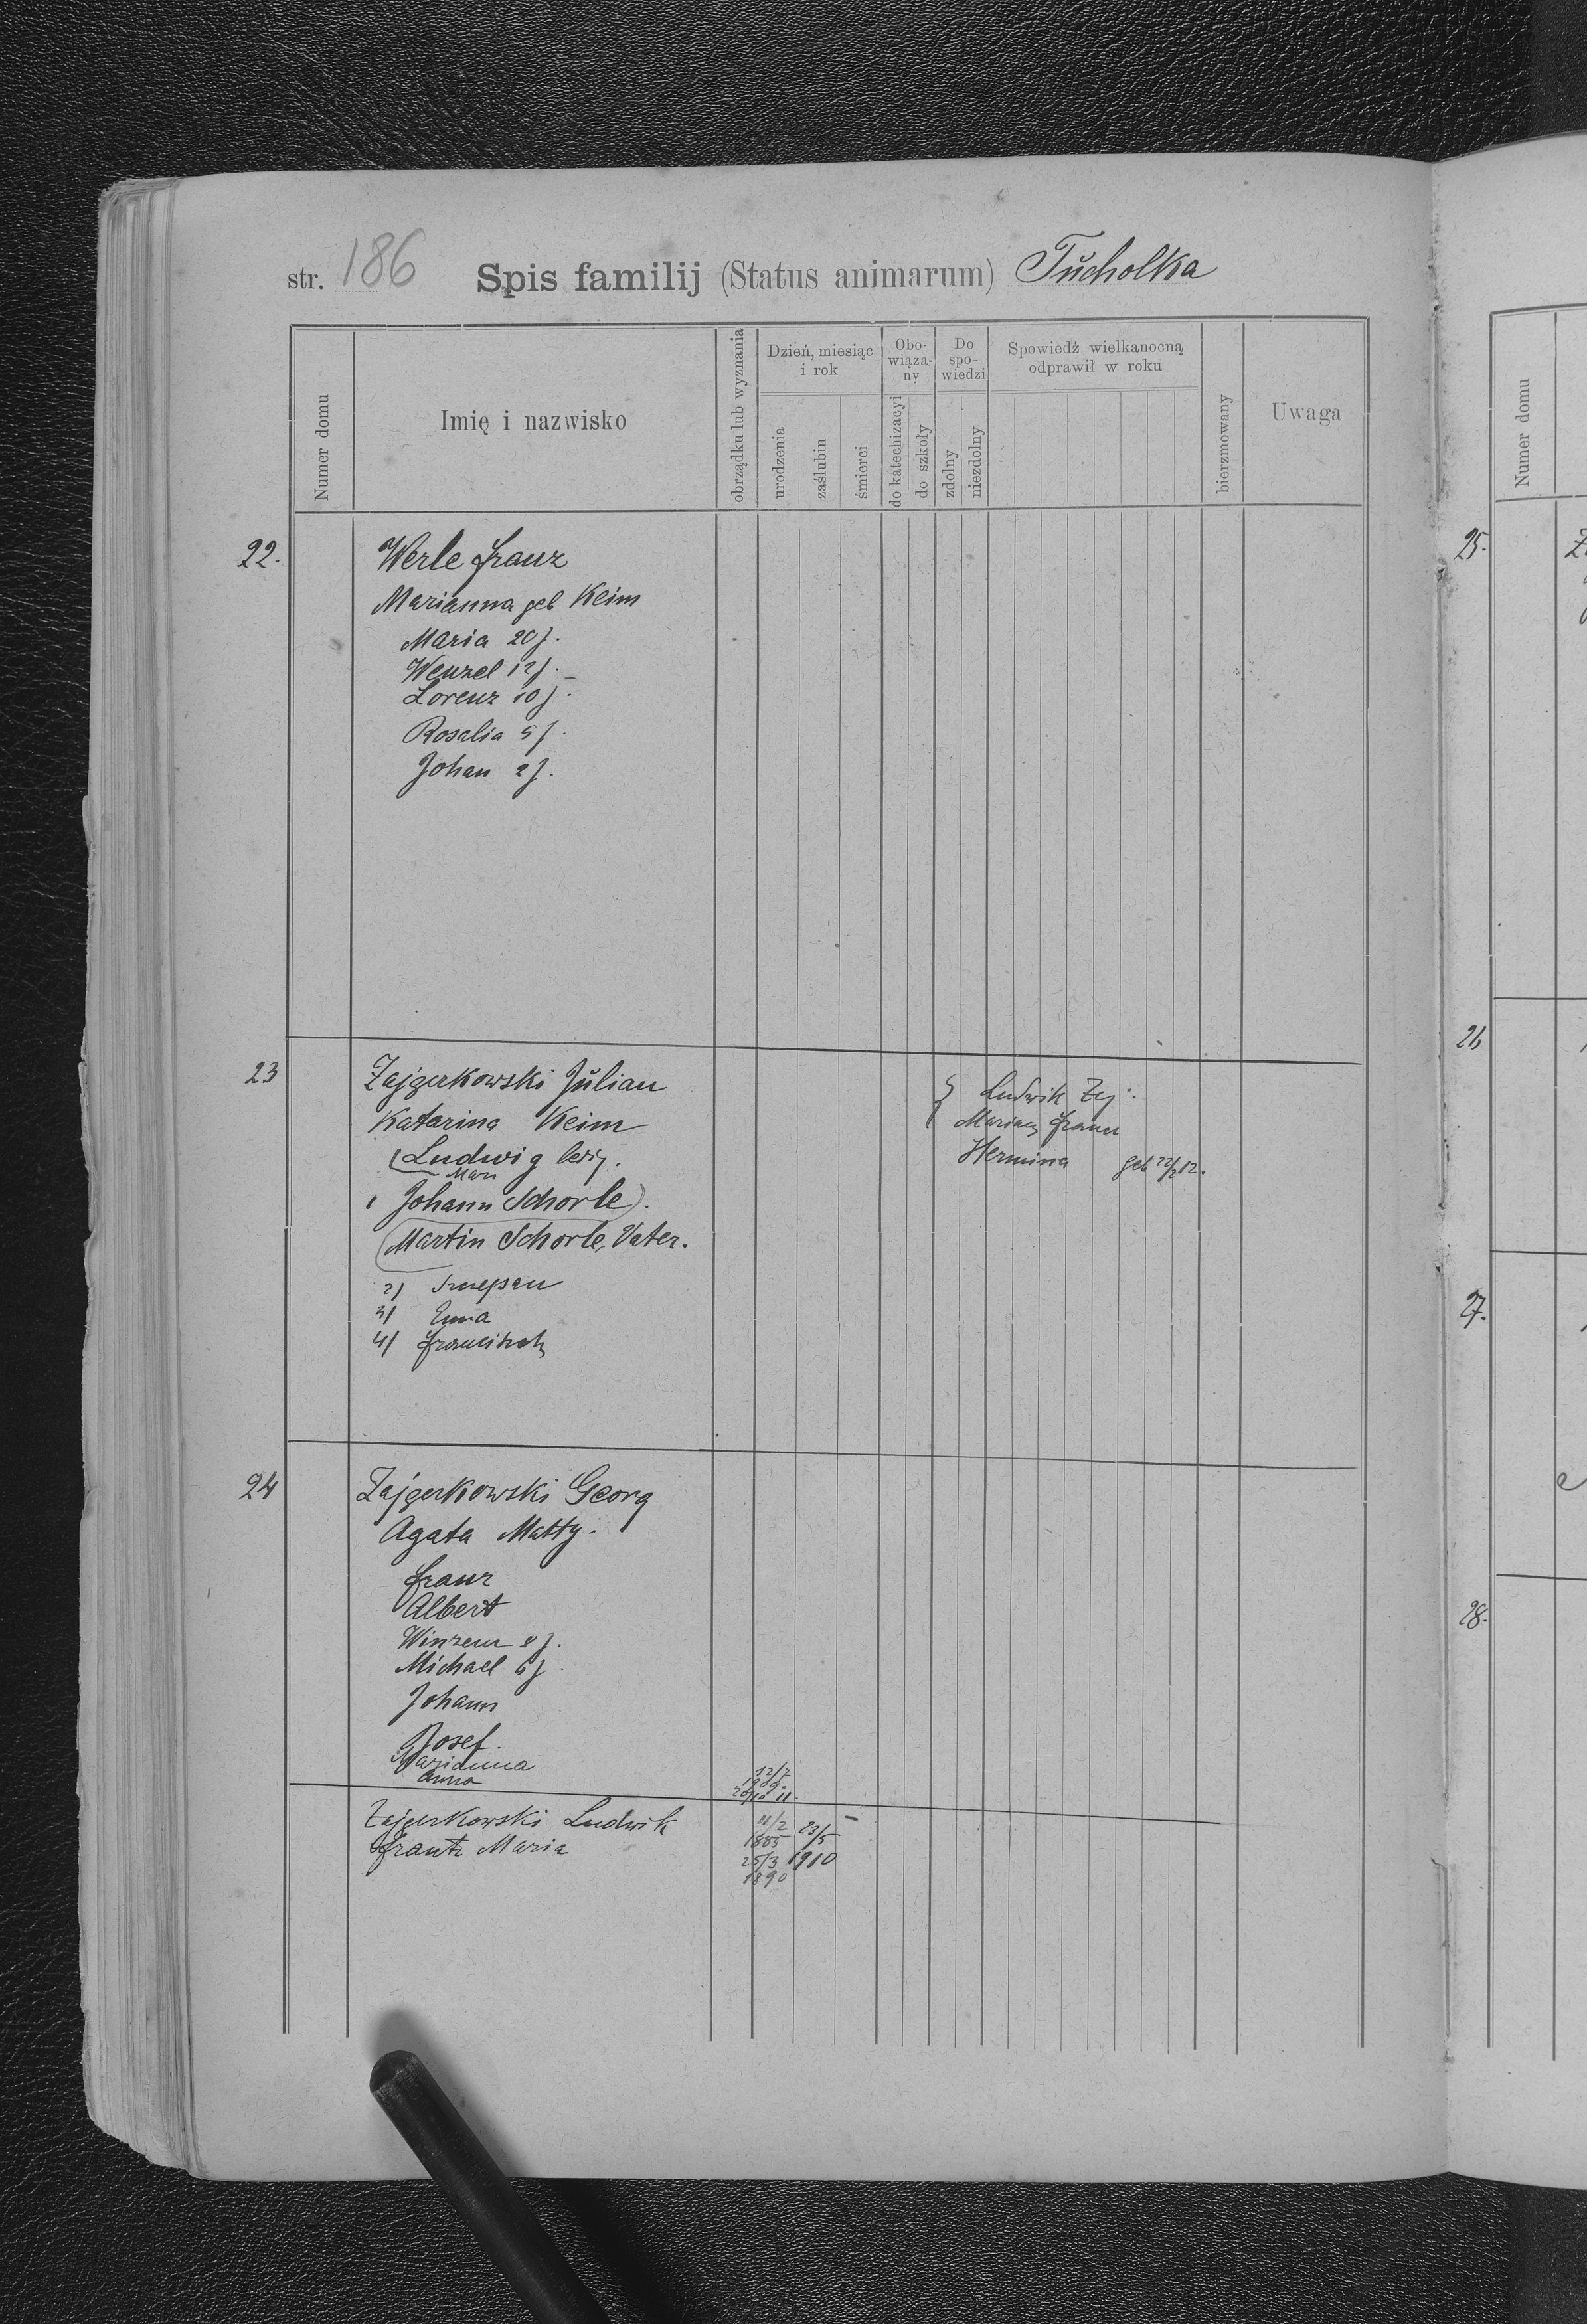 str. 186 Spis familij (Status animarum) Tŭcholka
Numer domu
Imię i nazwisko
obrządku lub wyznania
Dzień, miesiąc i rok
urodzenia
zaślubin
śmierci
Obo-wiąza-ny
do katechizacyi
do szkoły
Do spo-wiedzi
zdolny
niezdolny
Spowiedź wielkanocną odprawił w roku
bierzmowany
Uwaga
22. Werle Franz
Marianna geb Keim
Maria 20 J.
Wenzel 12 J.
Lorenz 10 J.
Rosalia 5 J.
Johan 2 J.
23 Zajgerkowski Jŭlian
Katarina Keim
Ludwig ledig.
Johann Schorle).
(Martin Schorle, Vater.
2)
3) Ema
4)
{ Ludwik Zaj.
Hermina geb 22/2 12.
24 Zajgerkowski Georg
Agata Matty.
Franz
Albert
Winzenz 8 J.
Michael 6 J.
Johann
Josef.
Marianna 12/7 1909.
Anna 20/10 11.
Zajgerkowski Ludwik 11/2 1885 23/5 1910
Frantz Maria 25/3 1890
Numer domu
25.
26
27.
28.